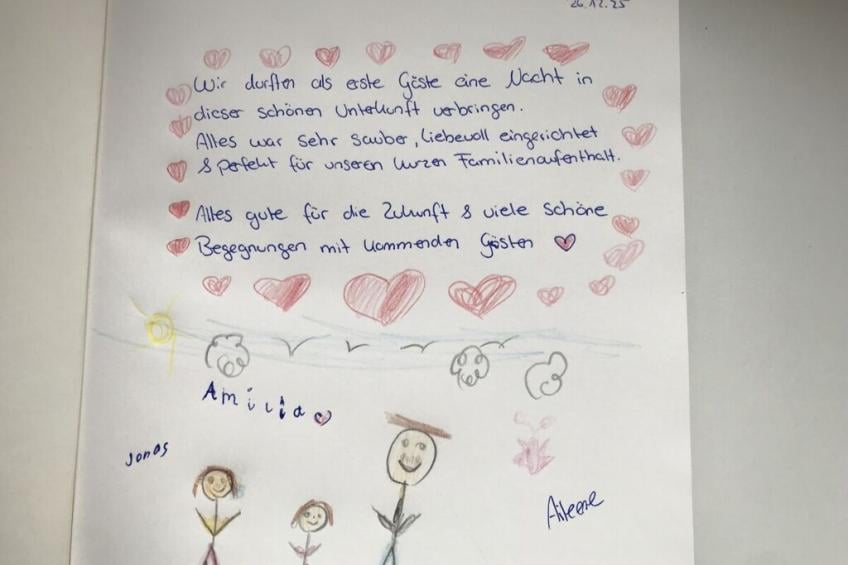 26.12.25
Wir durften als erste Gäste eine Nacht in
dieser schönen Unterkunft verbringen.
Alles war sehr sauber, liebevoll eingerichtet
& perfekt für unseren kurzen Familienaufenthalt.
Alles gute für die Zukunft & viele schöne
Begegnungen mit kommenden Gästen
Jonas